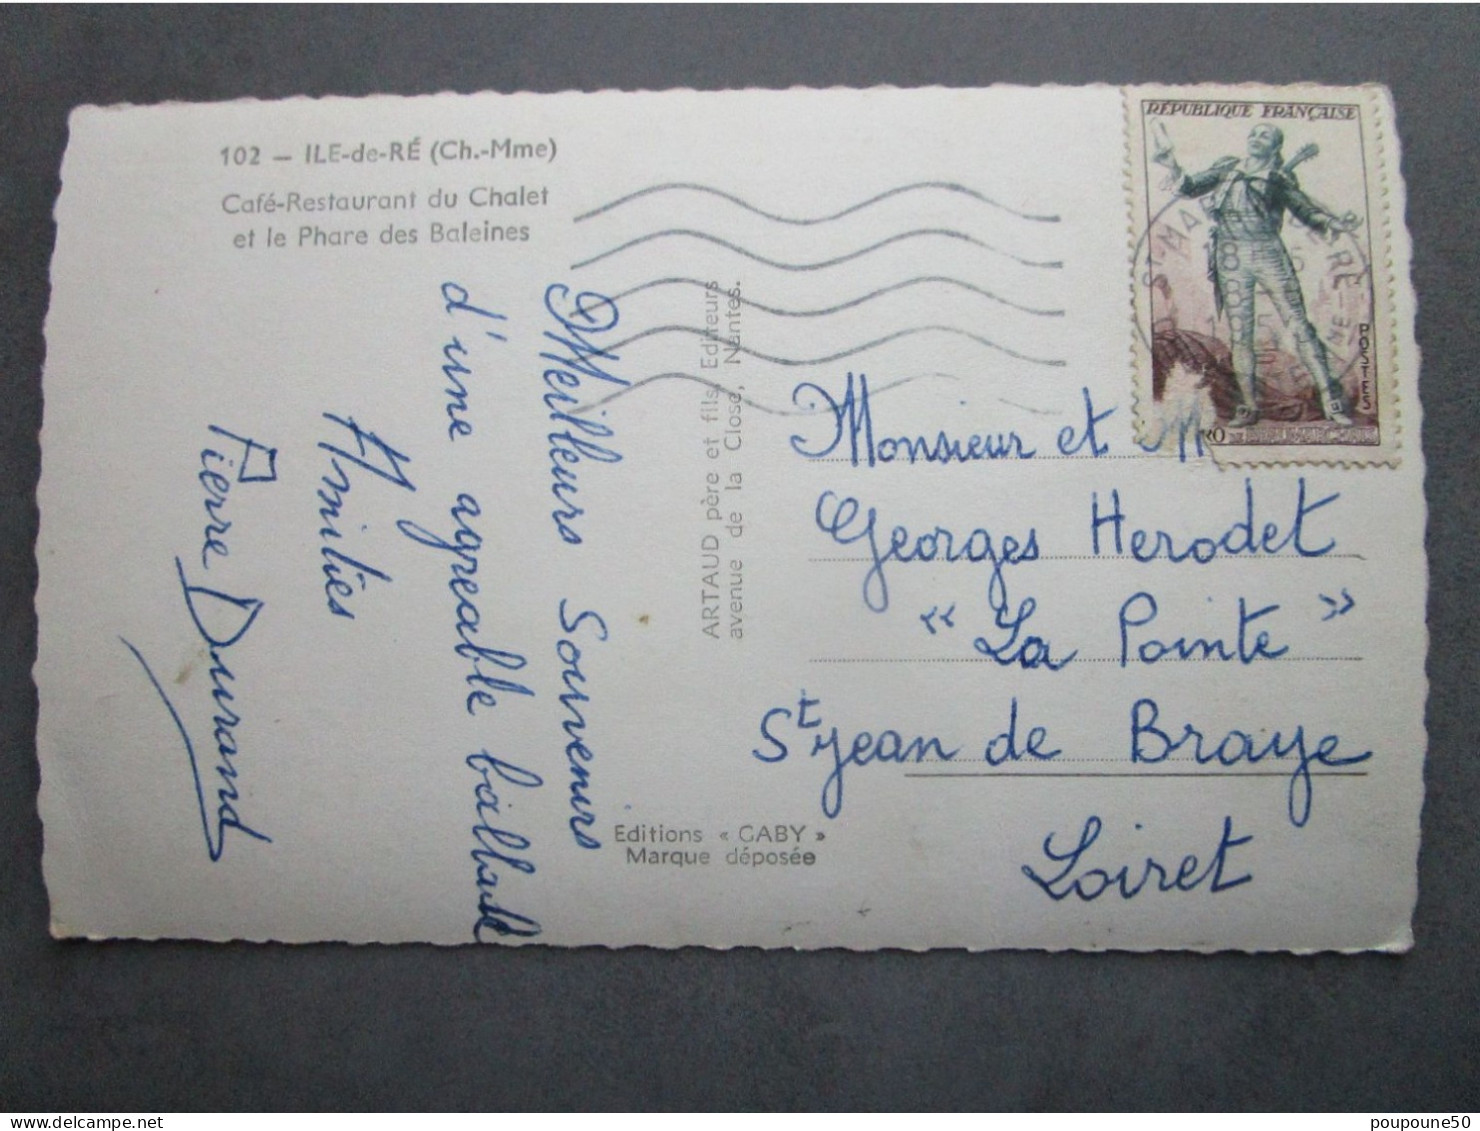 102 — ILE-de-RÉ (Ch.-Mme)
Café-Restaurant du Chalet
et le Phare des Baleines
Meilleurs Souvenirs
d'une agréable ballade
Amitiés
Pierre Durand
ARTAUD père et fils, Editeurs
avenue de la Close, Nantes.
Editions « GABY »
Marque déposée
RÉPUBLIQUE FRANÇAISE
POSTES
Monsieur et M
Georges Herodet
" La Pointe "
St Jean de Braye
Loiret
poupoune50